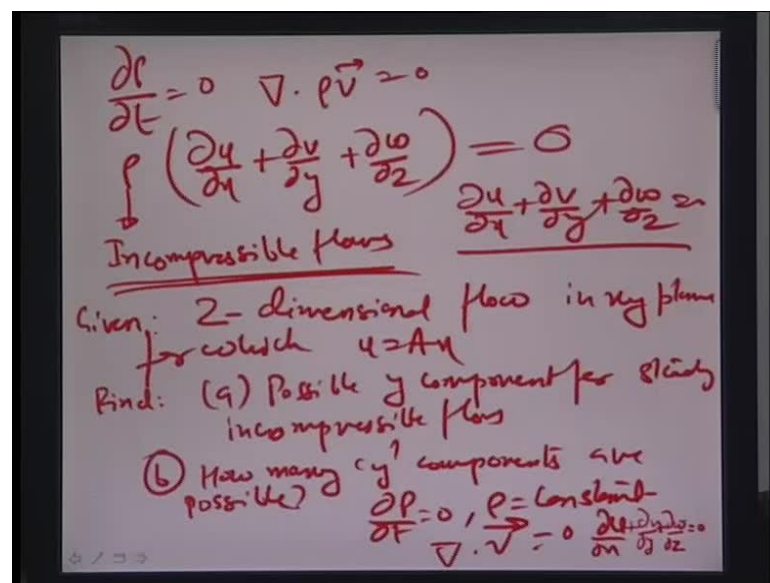 ∂ρ/∂t = 0   ∇·ρv⃗ = 0
ρ (∂u/∂x + ∂v/∂y + ∂w/∂z) = 0
∂u/∂x + ∂v/∂y + ∂w/∂z =
Incompressible flows
Given: 2-dimensional flow in xy plane
for which u=Ax
Find: (a) Possible y component for steady
incompressible flow
(b) How many 'y' components are
possible?
∂ρ/∂t = 0, ρ = Constant
∇·v⃗ = 0   ∂u/∂x + ∂v/∂y + ∂w/∂z = 0